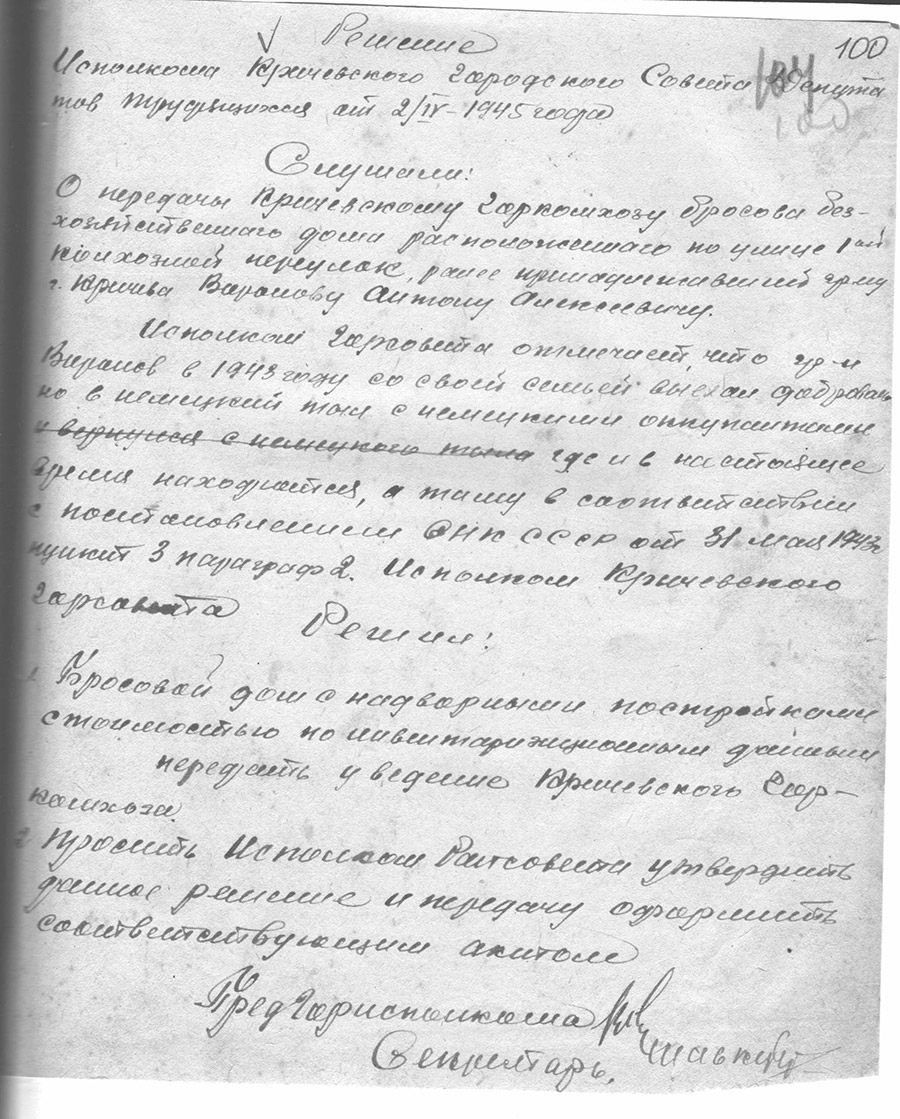 100
Решение
Исполкома Кричевского Городского Совета Депута
тов Трудящихся от 2/IV-1945 года
Слушали:
О передачы Кричевскому Горкомхозу бросова без-
хозяйственного дома расположенного по улице 1 ой
Колхозной переулок, ранее принадлежавший гр-ну
г. Кричева Варанову Антону Алексеевичу.
Исполком Горсовета отмечает, что гр-н
Варанов в 1943 году со своей семьей выехал добраволь
но в немецкий тыл с немецкими оккупантами
и вернулся с немецкого тыла где и в настоящее
время находится, а таму в соответствии
с постановлением СНК СССР от 31 мая 1943г
пункт 3 параграф 2. Исполком Кричевского
Горсовета
Решил:
1 Бросовой дом с надворными постройками
стоимостью по инвентаризиционным данным
передать у ведение Кричевского Гор-
комхоза.
2 Просить Исполком Райсовета утвердить
данное решение и передачу оформить
соответствующим актом
Пред Горисполкома
Секретарь.